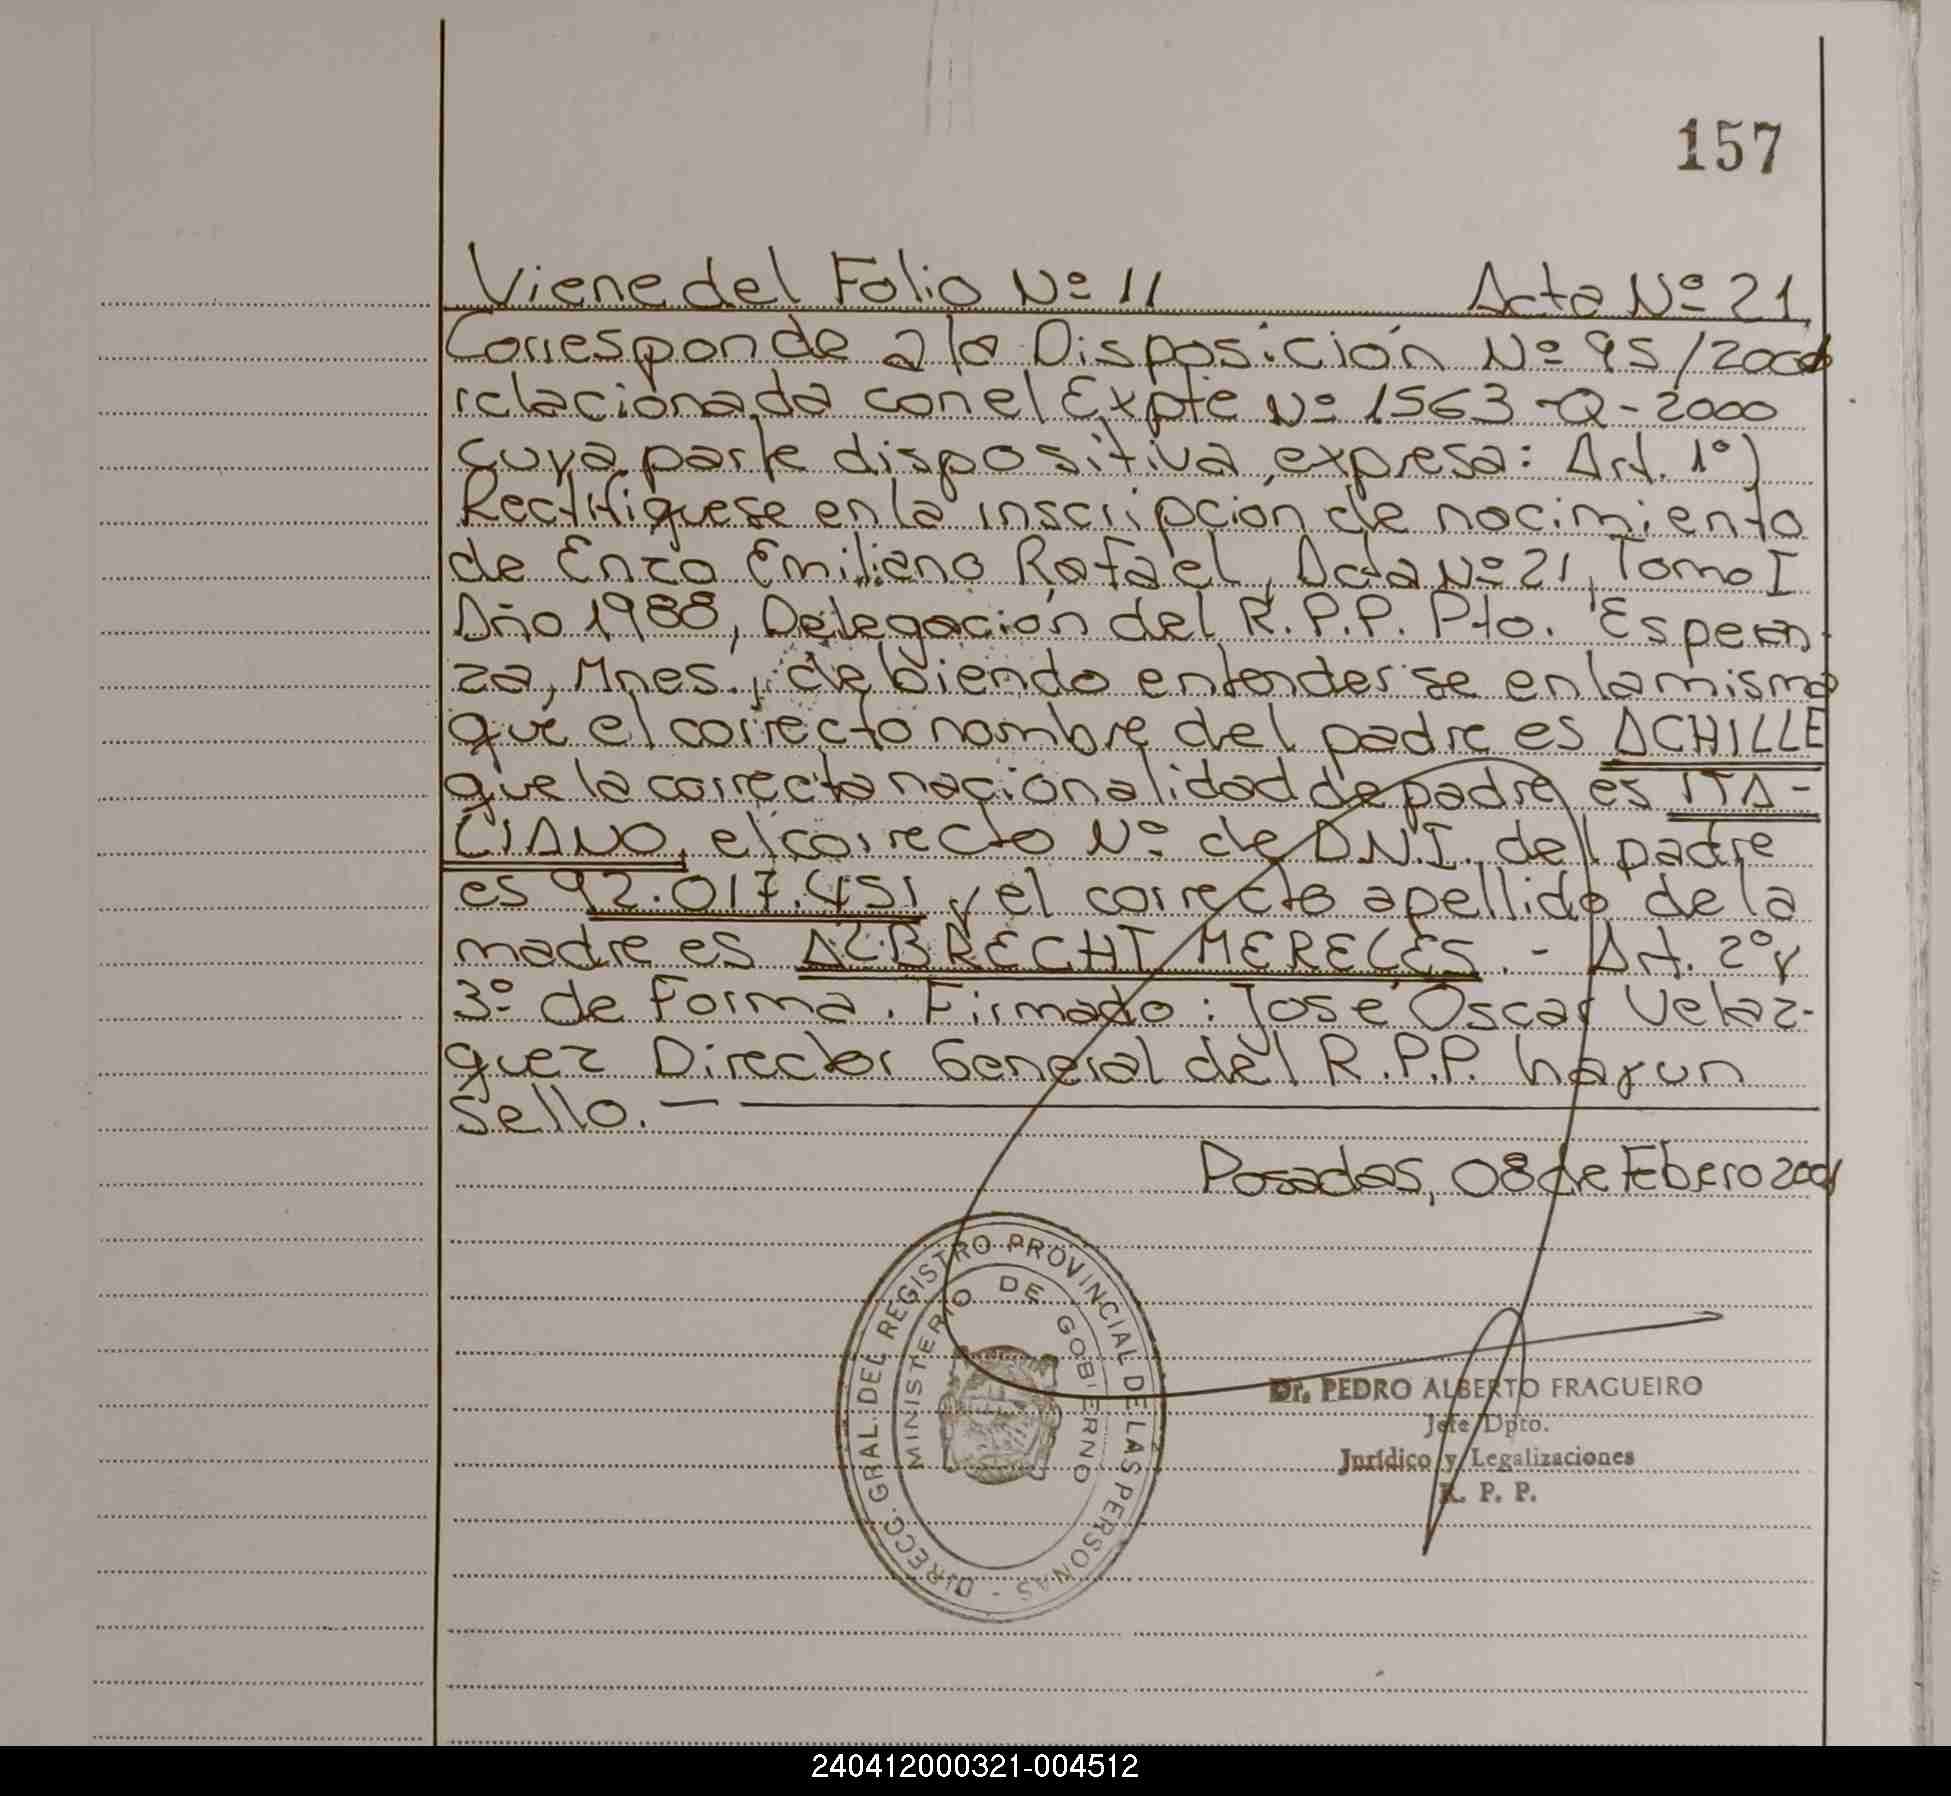 157
Viene del Folio Nº 11 Acta Nº 21
Corresponde a la Disposición Nº 95/2000
relacionada con el Expte Nº 1563-Q-2000
cuya parte dispositiva expresa: Art. 1º)
Rectifíquese en la inscripción de nacimiento
de Enzo Emiliano Rafael, Acta Nº 21, Tomo I
Año 1988, Delegación del R.P.P. Pto. Esperan
za, Mnes., debiendo entenderse en la misma
que el correcto nombre del padre es ACHILLE
que la correcta nacionalidad de padre es ITA-
LIANO, el correcto Nº de D.N.I. del padre
es 92.017.451 y el correcto apellido de la
madre es ALBRECHT MERELES.- Art. 2º y
3º de Forma. Firmado: José Oscar Velaz-
quez Director General del R.P.P. hay un
sello. —
Posadas, 08 de Febrero 2001
DIRECC. GRAL. DEL REGISTRO PROVINCIAL DE LAS PERSONAS -
MINISTERIO DE GOBIERNO
Dr. PEDRO ALBERTO FRAGUEIRO
Jefe Dpto.
Jurídico y Legalizaciones
R. P. P.
240412000321-004512